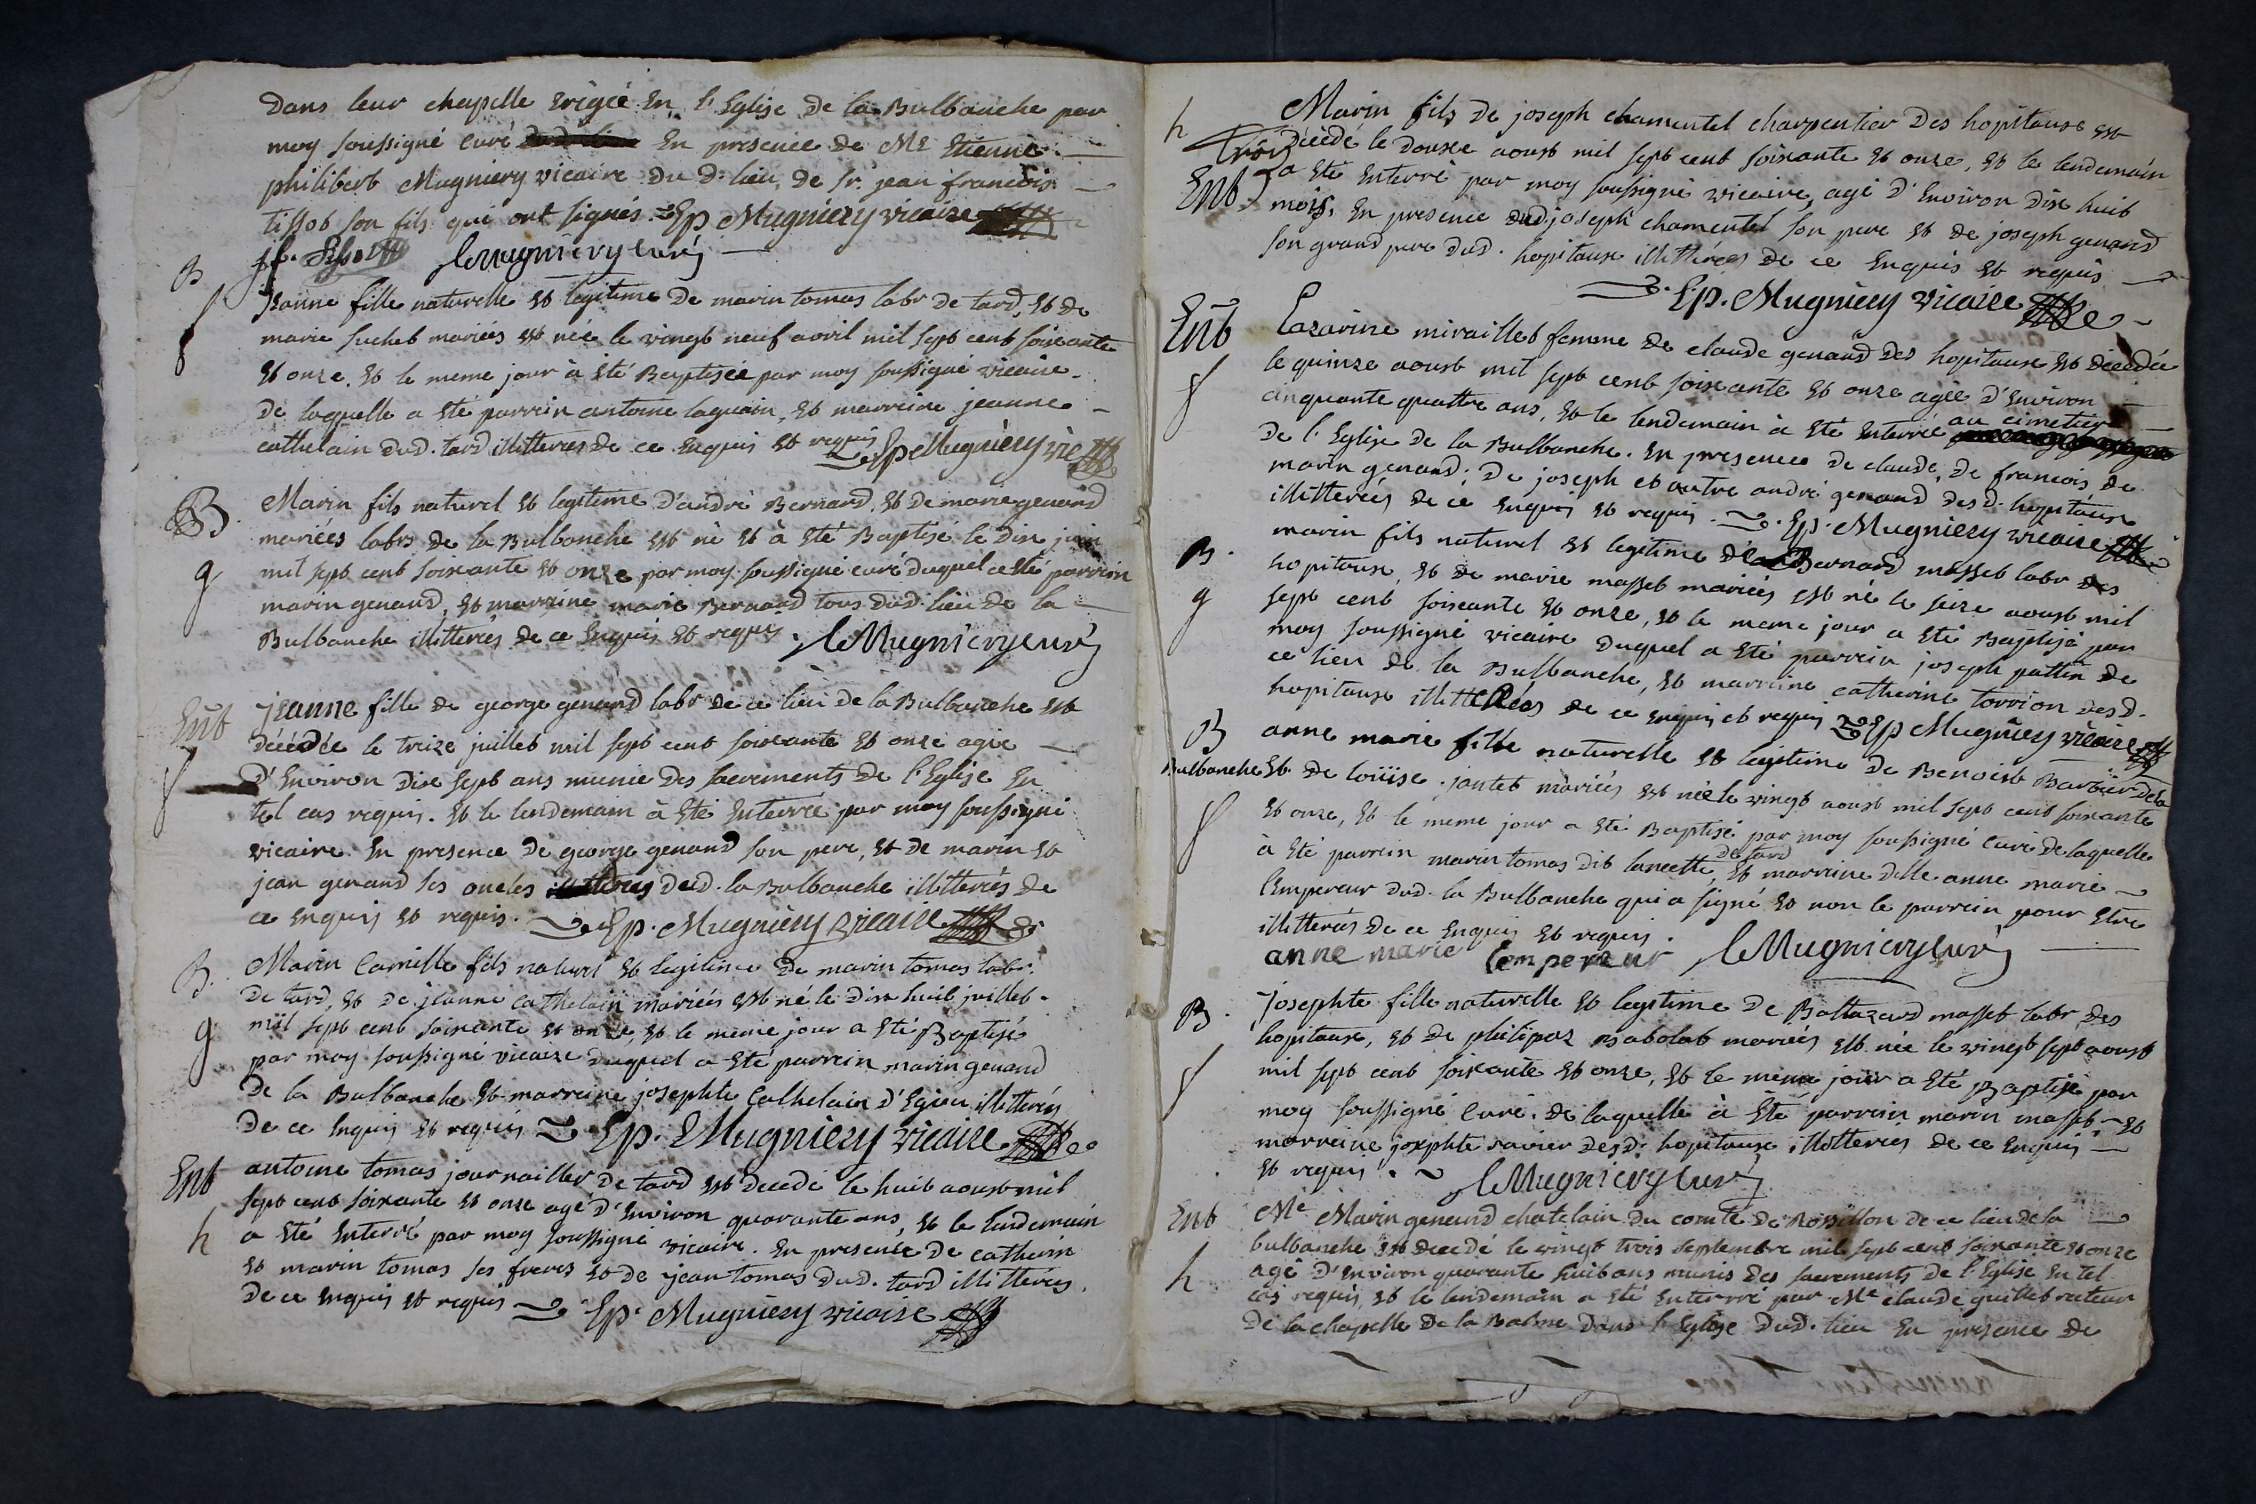 Dans leur chapelle Erigée En l'Eglise de la Bulbanche par
moy soussigné curé En presence de Me Etienne
philibert Mugniery vicaire du d. lieu, de Sr. jean francois
tissot son fils qui ont signés. Ep Mugniery vicaire
jf. Tissot leMugniery curé
B
f
jeanne fille naturelle et legitime de marin tomas labr de tard, et de
marie suchet mariés est née le vingt neuf avril mil sept cent soixante
et onze. et le meme jour à été Baptisée par moy soussigné vicaire.
de laquelle a été parrein antoine laguain, et marreine jeanne
cathelain dud. tard illitterés de ce Enquis et requis Ep Mugniery vic
B.
g
Marin fils naturel et legitime d'andré Bernard, et de marie genand
mariées labrs de la Bulbanche est né et à été Baptisé le dix juin
mil sept cent soixante et onze par moy soussigné curé duquel a esté parrein
marin genand, et marraine marie Bernard tous dud. lieu de la
Bulbanche illitterés de ce Enquis et requis. leMugniery curé
Ent
f
jeanne fille de george genand labr de ce lieu de la Bulbanche est
décédée le treize juillet mil sept cent soixante et onze agée
d'Environ dix sept ans munie des sacrements de l'Eglise En
tel cas requis. et le lendemain à été Enterrée par moy soussigné
vicaire En presence de george genand son pere, et de marin et
jean genand ses oncles dud. la Bulbanche illitterés de
ce Enquis et requis. Ep. Mugniery vicaire
B.
g
Marin Camille fils naturel et legitime de marin tomas labr.
de tard, et de jeanne cathelain mariés est né le dix huit juillet
mil sept cent soixante et onze, et le meme jour a été Baptisé
par moy soussigné vicaire duquel a été parrein marin genand
de la Bulbanche et marreine josephte Cathelain d'Egieu illitterés
de ce Enquis et requis Ep. Mugniery vicaire
Ent
h
antoine tomas journaillier de tard est decedé le huit aoust mil
sept cent soixante et onze agé d'Environ quarante ans, et le lendemain
a été Enterré par moy soussigné vicaire. En presence de catherin
et marin tomas ses freres et de jean tomas dud. tard illitterés
de ce Enquis et requis Ep. Mugniery vicaire
h
Ent
Marin fils de joseph chamentel charpentier des hopitaux est
décédé le douze aoust mil sept cent soixante et onze, et le lendemain
a été Enterré par moy soussigné vicaire, agé d'Environ dix huit
mois, En presence dud joseph chamentel son pere et de joseph genand
son grand pere dud. hopitaux illitterés de ce Enquis et requis
Ep. Mugniery vicaire
Ent
f
Lazarine miraillet femme de claude genand des hopitaux est décédée
le quinze aoust mil sept cent soixante et onze agée d'Environ
cinquante quattre ans, et le lendemain à été Enterrée au cimetiere
de l'Eglise de la Bulbanche. En presence de claude, de francois de
marin genand, de joseph et autre andré genand desd. hopitaux
illitterés de ce Enquis et requis. Ep. Mugniery vicaire
B.
g
marin fils naturel et legitime de Bernard masset labr des
hopitaux, et de marie masset mariés est né le seize aoust mil
sept cent soixante et onze, et le meme jour a été Baptisé par
moy soussigné vicaire duquel a été parrein joseph pattin de
ce lieu de la Bulbanche, et marreine catherine torrion desd.
hopitaux illitterés de ce Enquis et requis Ep Mugniery vicaire
B
f
anne marie fille naturelle et legitime de Benoist Barbier de la
Bulbanche et de loüise jantet mariés est née le vingt aoust mil sept cent soixante
et onze, et le meme jour a été Baptisé par moy soussigné curé de laquelle
à été parrein marin tomas dit lancette de tard et marreine dlle anne marie
l'Empereur dud. la Bulbanche qui a signé et non le parrein pour etre
illitterés de ce Enquis et requis.
anne marie lempereur leMugniery curé
B.
f
josephte fille naturelle et legitime de Baltazard masset labr des
hopitaux, et de philipaz Babolat mariés est née le vingt sept aoust
mil sept cent soixante et onze, et le meme jour a été Baptisé par
moy soussigné curé. de laquelle à été parrein marin masset et
marreine josephte ravier desd. hopitaux illitterés de ce Enquis
et requis. leMugniery curé
Ent
h
Me Marin genand chatelain du comté de Rossillon de ce lieu de la
bulbanche est decedé le vingt trois septembre mil sept cent soixante et onze
agé d'Environ quarante huit ans munis des sacrements de l'Eglise En tel
cas requis, et le lendemain a été Enterré par Me claude guillet recteur
de la chapelle de la Balme dans l'Eglise dud. lieu En presence de